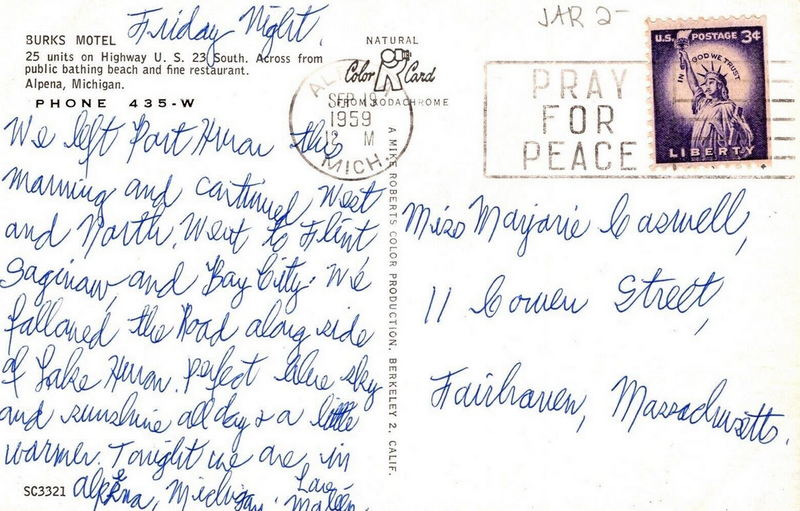 Friday Night.
JAR 2-
BURKS MOTEL
25 units on Highway U. S. 23 South. Across from
public bathing beach and fine restaurant.
Alpena, Michigan.
PHONE 435-W
NATURAL
Color Card
FROM KODACHROME
SEP 19
1959
12 M
MICH.
PRAY
FOR
PEACE
U.S. POSTAGE 3¢
IN GOD WE TRUST
LIBERTY
We left Port Huron this
morning and continued West
and North. Went to Flint
Saginaw, and Bay City. We
followed the Road along side
of Lake Huron. Perfect blue sky
and sunshine all day & a little
warmer. Tonight we are in
Alpena, Michigan.
Love
SC3321
A MIKE ROBERTS COLOR PRODUCTION. BERKELEY 2, CALIF.
Miss Marjorie Caswell,
11 Cowen Street,
Fairhaven, Massachusetts.